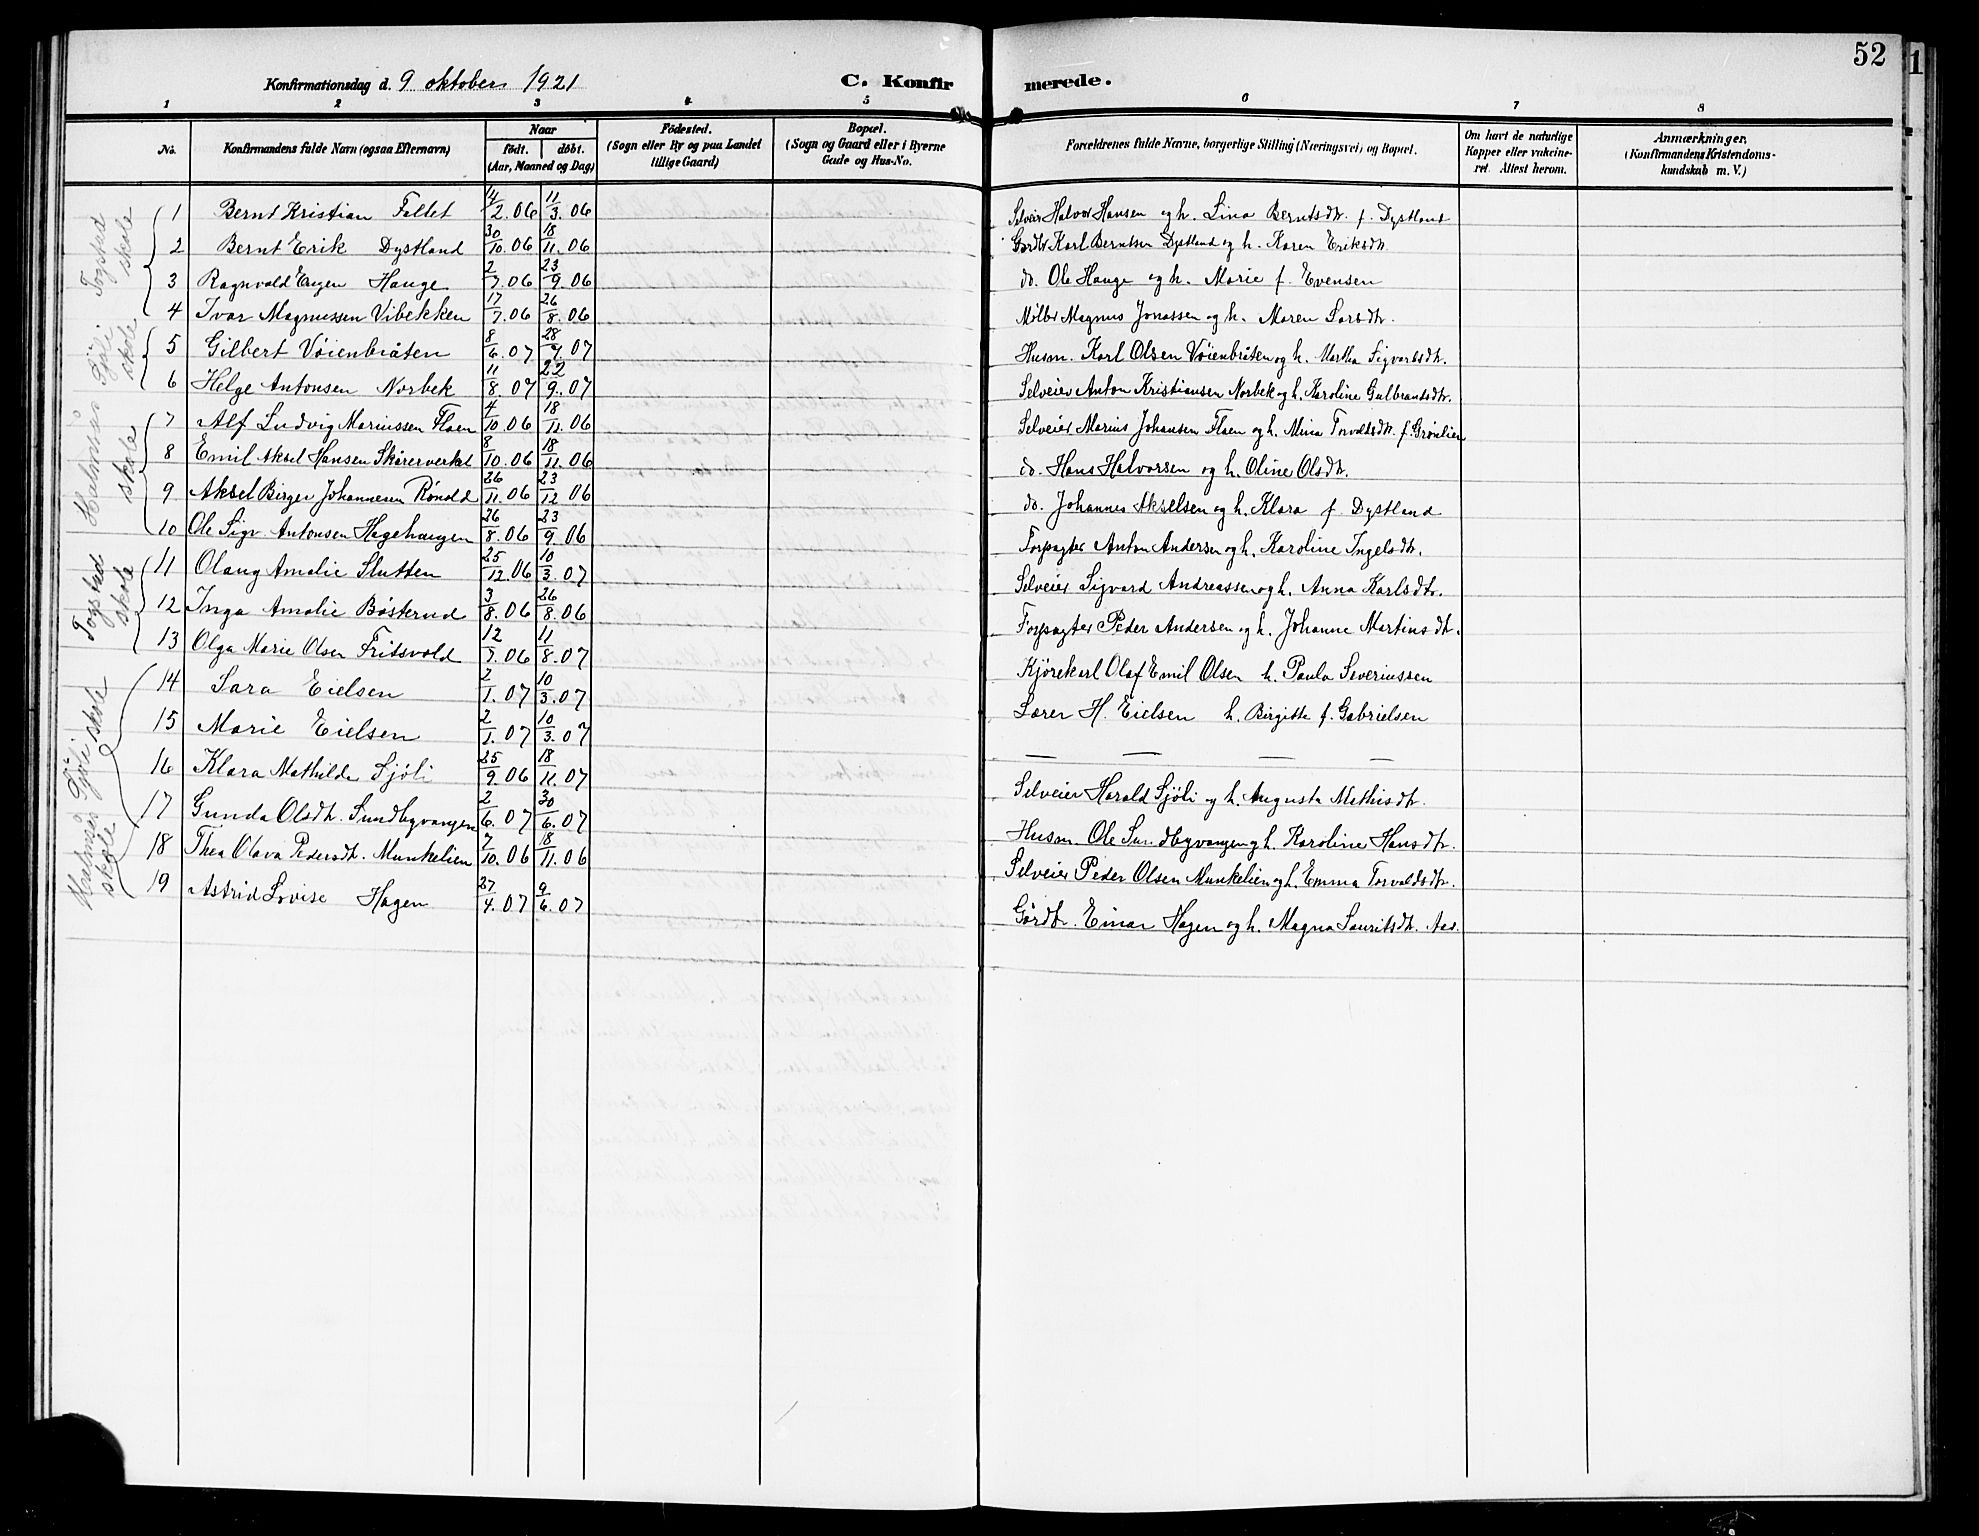 52
Konfirmationsdag d. 9 oktober 1921
C. Konfirmerede.
1 2 3 4 5 6 7 8
No.
Konfirmandens fulde Navn (ogsaa Efternavn)
Naar
født. døbt.
(Aar, Maaned og Dag)
Fødested.
(Sogn eller By og paa Landet
tillige Gaard)
Bopæl.
(Sogn og Gaard eller i Byerne
Gade og Hus-No.
Forældrenes fulde Navne, borgerlige Stilling (Næringsvei) og Bopæl.
Om havt de naturlige
Kopper eller vakcine-
ret. Attest herom.
Anmærkninger.
(Konfirmandens Kristendoms-
kundskab m. V.)
Togstad skole
1 Bernt Kristian Fallet 14/2.06 11/3.06 Selveier Halvor Hansen og h. Lina Berntsdtr. f. Dystland
2 Bernt Erik Dystland 30/10.06 18/11.06 Gardbr Karl Berntsen Dystland og h. Karen Eriksdtr.
3 Ragnvald Eugen Hauge 2/7.06 23/9.06 do. Ole Hauge og h. Marie f. Evensen
4 Ivar Magnussen Vibekken 17/7.06 26/8.06 Mølbr Magnus Jonassen og h. Maren Larsdtr.
Sjøli skole
5 Gilbert Vøienbråten 8/6.07 28/7.07 Husm. Karl Olsen Vøienbråten og h. Martha Sigvartsdtr.
6 Helge Antonsen Norbek 11/8.07 22/9.07 Selveier Anton Kristiansen Norbek og h. Karoline Gulbrantsdtr.
Holmsås skole
7 Alf Ludvig Mariussen Floen 4/10.06 18/11.06 Selveier Marius Johansen Floen og h. Mina Torvaldsdtr. f. Grønlien
8 Emil Aksel Hansen Skårerverket 8/10.06 18/11.06 do. Hans Halvorsen og h. Oline Olsdtr.
9 Aksel Birger Johannesen Rønold 26/11.06 23/12 06 do. Johannes Akselsen og h. Klara f. Dystland
10 Ole Sigv. Antonsen Hagehaugen 26/8.06 23/9.06 Forpagter Anton Andersen og h. Karoline Ingelsdtr.
Togstad skole
11 Olaug Amalie Slutten 25/12.06 10/3.07 Selveier Sigvard Andreassen og h. Anna Karlsdtr.
12 Inga Amalie Bøsterud 3/8.06 26/8.06 Forpagter Peder Andersen og h. Johanne Martinsdtr.
13 Olga Marie Olsen Fritsvold 12/7.06 11/8.07 Kjørekarl Olaf Emil Olsen h. Paula Severinssen
Sjøli skole
14 Sara Eielsen 2/1.07 10/3.07 Lærer H. Eielsen h. Birgitte f. Gabrielsen
15 Marie Eielsen 2/1.07 10/3.07 — — — —
16 Klara Mathilde Sjøli 25/9.06 18/11.07 Selveier Harald Sjøli og h. Augusta Mathisdtr.
Holmsås skole
17 Gunda Olsdtr. Sundbyvangen 2/6.07 30/6.07 Husm. Ole Sundbyvangen og h. Karoline Hansdtr.
18 Thea Olava Pedersdtr. Munkelien 7/10.06 18/11.06 Selveier Peder Olsen Munkelien og h. Emma Torvaldsdtr.
19 Astrid Lovise Hagen 27/4.07 9/6.07 Gårdbr. Einar Hagen og h. Magna Lauritsdtr. Aas.